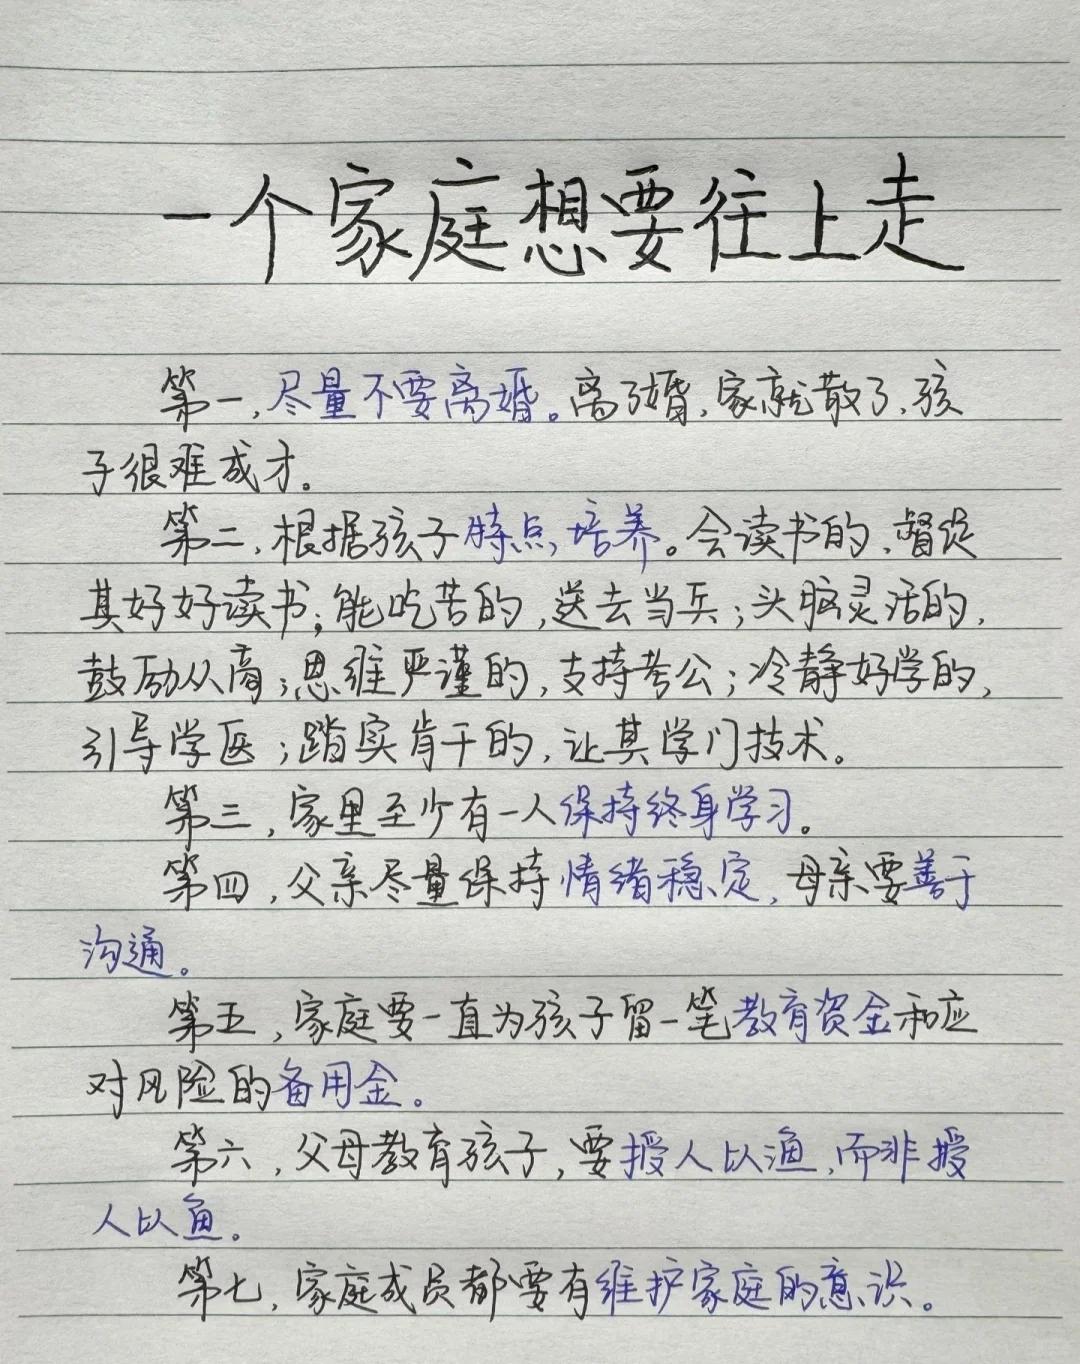 一个家庭想要往上走
第一,尽量不要离婚。离了婚,家就散了,孩
子很难成才。
第二,根据孩子特点培养。会读书的,督促
其好好读书;能吃苦的,送去当兵;头脑灵活的,
鼓励从商;思维严谨的,支持考公;冷静好学的,
引导学医;踏实肯干的,让其学门技术。
第三,家里至少有一人保持终身学习。
第四,父亲尽量保持情绪稳定,母亲要善于
沟通。
第五,家庭要一直为孩子留一笔教育资金和应
对风险的备用金。
第六,父母教育孩子,要授人以渔,而非授
人以鱼。
第七,家庭成员都要有维护家庭的意识。